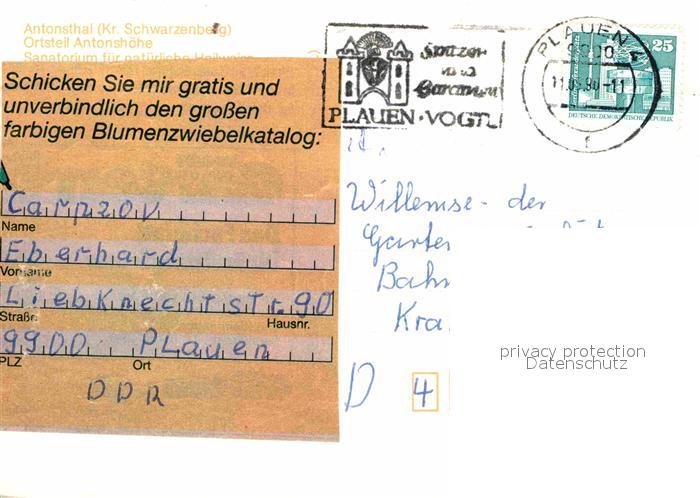 Antonsthal (Kr. Schwarzenberg)
Ortsteil Antonshöhe
Sanatorium für natürliche Heilweise
Schicken Sie mir gratis und
unverbindlich den großen
farbigen Blumenzwiebelkatalog:
Carpzov
Name
Eberhard
Vorname
Liebknechtstr. 90
Straße Hausnr.
9900 Plauen
PLZ Ort
DDR
Spitzen
und
Gardinen
PLAUEN · VOGTL
PLAUEN 4
9900
11.05.90-11
f
25
DEUTSCHE DEMOKRATISCHE REPUBLIK
Willemse - der
Garten
Bahn
Kra
D 4
privacy protection
Datenschutz